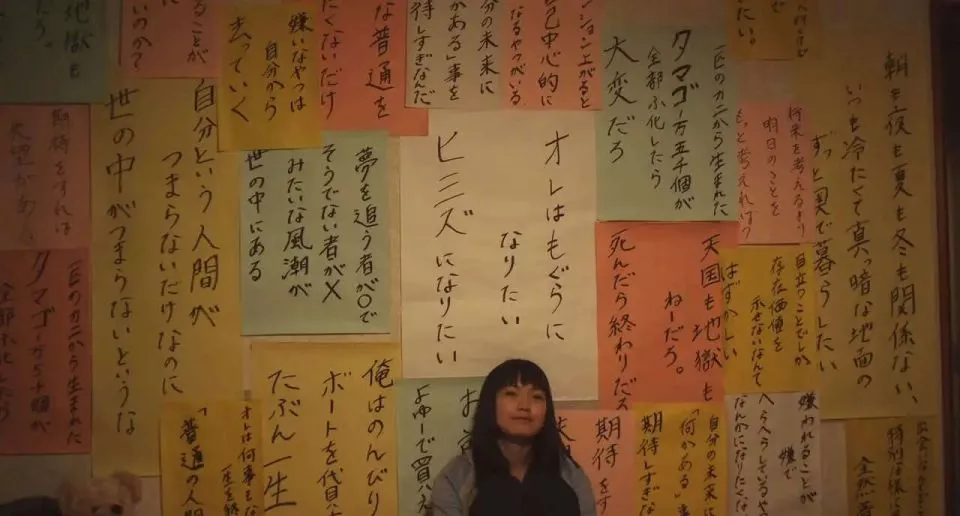 朝も夜も夏も冬も関係ない、
いつも冷たくて真っ暗な地面の
ずっと奥で暮らしたい
将来を考えるより
明日のことを
もっと考えれば?
一匹のカニから生まれた
タマゴ一万五千個が
全部ふ化したら
大変だろ
天国も地獄も
ねーだろ。
死んだら終わりだろ
自立つことでしか
存在価値を
示せないなんて
はずかしい
嫌われることが
嫌で
自分の未来に
「何かある」
期待しすぎな
期待
オレはもぐらに
なりたい
ミミズになりたい
ション上がると
自己中心的に
なるやつがいる
分の未来に
かある」事を
待しすぎなんだ
な普通を
たくないだけ
夢を追う者が〇で
そうでない者が×
みたいな風潮が
世の中にある
俺はのんびり
ボートを代目
たぶん一生
嫌いなやつは
自分から
去っていく
自分という人間が
つまらないだけなのに
世の中がつまらないというな
オレは何事も
一生を終
「普通の人間
期待をすれば
一匹のカニから生まれた
タマゴ一万五千個が
全部ふ化したら